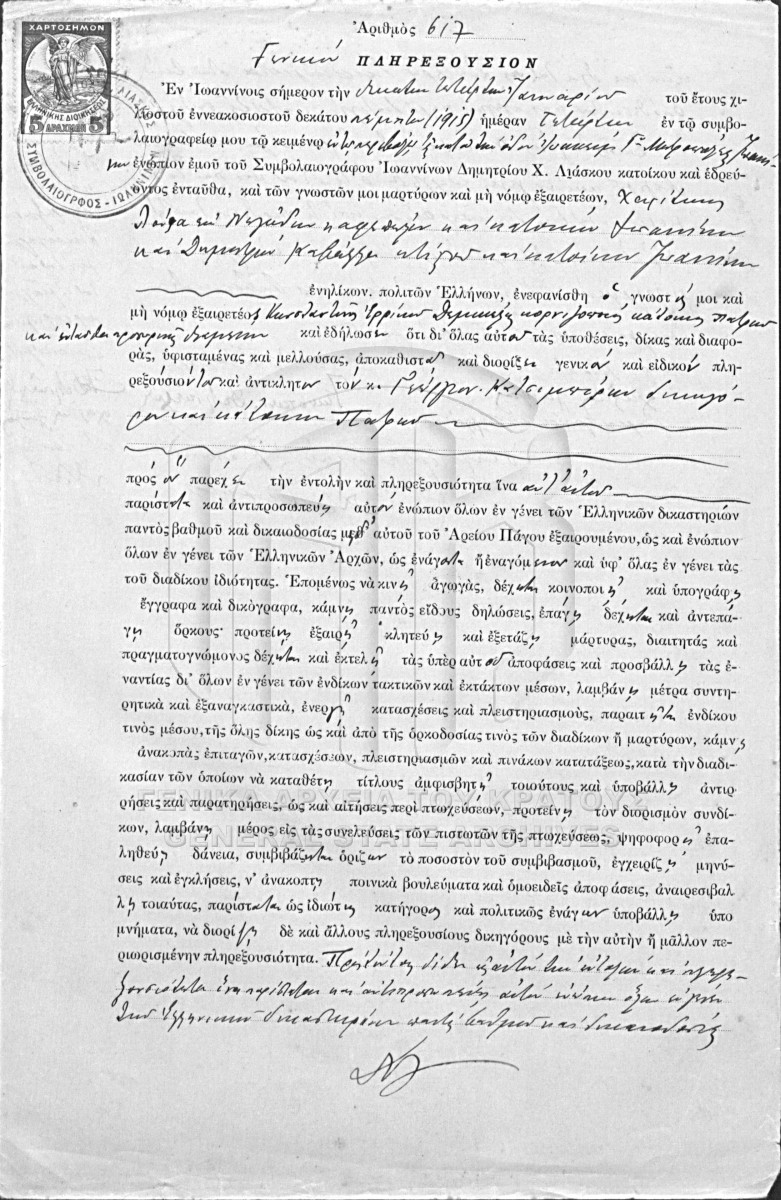 Ἀριθμὸς 617
Γενικὸν ΠΛΗΡΕΞΟΥΣΙΟΝ
ΧΑΡΤΟΣΗΜΟΝ
ΕΛΛΗΝΙΚΗΣ ΔΙΟΙΚΗΣΕΩΣ
5 ΔΡΑΧΜΑΙ 5
ΛΙΑΣΚΟΣ
ΣΥΜΒΟΛΑΙΟΓΡΦΟΣ - ΙΩΑΝΝΙΝ
Ἐν Ἰωαννίνοις σήμερον τὴν δεκάτην τετάρτην Ἰανουαρίου τοῦ ἔτους χι-
λιοστοῦ ἐννεακοσιοστοῦ δεκάτου πέμπτου (1915) ἡμέραν Τετάρτην ἐν τῷ συμβο-
λαιογραφείῳ μου τῷ κειμένῳ
ἐνώπιον ἐμοῦ τοῦ Συμβολαιογράφου Ἰωαννίνων Δημητρίου Χ. Λιάσκου κατοίκου καὶ ἑδρεύ-
οντος ἐνταῦθα, καὶ τῶν γνωστῶν μοι μαρτύρων καὶ μὴ νόμῳ ἐξαιρετέων,
καὶ κατοίκου Ἰωαννίνων
καὶ Δημητρίου καὶ κατοίκου Ἰωαννίνων
ἐνηλίκων. πολιτῶν Ἑλλήνων, ἐνεφανίσθη ὁ γνωστός μοι καὶ
μὴ νόμῳ ἐξαιρετέος Κωνσταντῖνος κάτοικος Πατρῶν
καὶ προσωρινῶς διαμένων καὶ ἐδήλωσεν ὅτι δι' ὅλας αὐτοῦ τὰς ὑποθέσεις, δίκας καὶ διαφο-
ράς, ὑφισταμένας καὶ μελλούσας, ἀποκαθιστᾷ καὶ διορίζει γενικὸν καὶ εἰδικὸν πλη-
ρεξούσιόν του καὶ ἀντίκλητον τὸν κ. Γεώργιον δικηγό-
ρον καὶ κάτοικον Πατρῶν
πρὸς ὃν παρέχει τὴν ἐντολὴν καὶ πληρεξουσιότητα ἵνα
παρίσταται καὶ ἀντιπροσωπεύῃ αὐτὸν ἐνώπιον ὅλων ἐν γένει τῶν Ἑλληνικῶν δικαστηρίων
παντὸς βαθμοῦ καὶ δικαιοδοσίας μηδ' αὐτοῦ τοῦ Ἀρείου Πάγου ἐξαιρουμένου, ὡς καὶ ἐνώπιον
ὅλων ἐν γένει τῶν Ἑλληνικῶν Ἀρχῶν, ὡς ἐνάγων ἢ ἐναγόμενον καὶ ὑφ' ὅλας ἐν γένει τὰς
τοῦ διαδίκου ἰδιότητας. Ἑπομένως νὰ κινῇ ἀγωγάς, δέχηται κοινοποιῇ καὶ ὑπογράφῃ
ἔγγραφα καὶ δικόγραφα, κάμνῃ παντὸς εἴδους δηλώσεις, ἐπάγῃ δέχηται καὶ ἀντεπά-
γῃ ὅρκους· προτείνῃ ἐξαιρῇ κλητεύῃ καὶ ἐξετάζῃ μάρτυρας, διαιτητὰς καὶ
πραγματογνώμονας δέχηται καὶ ἐκτελῇ τὰς ὑπὲρ αὐτοῦ ἀποφάσεις καὶ προσβάλλῃ τὰς ἐ-
ναντίας δι' ὅλων ἐν γένει τῶν ἐνδίκων τακτικῶν καὶ ἐκτάκτων μέσων, λαμβάνῃ μέτρα συντη-
ρητικὰ καὶ ἐξαναγκαστικά, ἐνεργῇ κατασχέσεις καὶ πλειστηριασμούς, παραιτῆται ἐνδίκου
τινὸς μέσου, τῆς ὅλης δίκης ὡς καὶ ἀπὸ τῆς ὁρκοδοσίας τινὸς τῶν διαδίκων ἢ μαρτύρων, κάμνῃ
ἀνακοπὰς ἐπιταγῶν, κατασχέσεων, πλειστηριασμῶν καὶ πινάκων κατατάξεως, κατὰ τὴν διαδι-
κασίαν τῶν ὁποίων νὰ καταθέτῃ τίτλους ἀμφισβητῇ τοιούτους καὶ ὑποβάλλῃ ἀντιρ-
ρήσεις καὶ παρατηρήσεις, ὡς καὶ αἰτήσεις περὶ πτωχεύσεων, προτείνῃ τὸν διορισμὸν συνδί-
κων, λαμβάνῃ μέρος εἰς τὰς συνελεύσεις τῶν πιστωτῶν τῆς πτωχεύσεως, ψηφοφορῇ ἐπα-
ληθεύῃ δάνεια, συμβιβάζηται ὁρίζων τὸ ποσοστὸν τοῦ συμβιβασμοῦ, ἐγχειρίζῃ μηνύ-
σεις καὶ ἐγκλήσεις, ν' ἀνακόπτῃ ποινικὰ βουλεύματα καὶ ὁμοειδεῖς ἀποφάσεις, ἀναιρεσιβάλ
λῃ τοιαύτας, παρίσταται ὡς ἰδιώτης κατήγορος καὶ πολιτικῶς ἐνάγων ὑποβάλλῃ ὑπο
μνήματα, νὰ διορίζῃ δὲ καὶ ἄλλους πληρεξουσίους δικηγόρους μὲ τὴν αὐτὴν ἢ μᾶλλον πε-
ριωρισμένην πληρεξουσιότητα. δίδει τὴν ἐντολὴν καὶ πληρε-
ξουσιότητα ἵνα παρίσταται καὶ ἀντιπροσωπεύῃ αὐτὸν ἐνώπιον ὅλων ἐν γένει
τῶν Ἑλληνικῶν δικαστηρίων παντὸς βαθμοῦ καὶ δικαιοδοσίας
ΓΕΝΙΚΑ ΑΡΧΕΙΑ ΤΟΥ ΚΡΑΤΟΥΣ
GENERAL STATE ARCHIVES